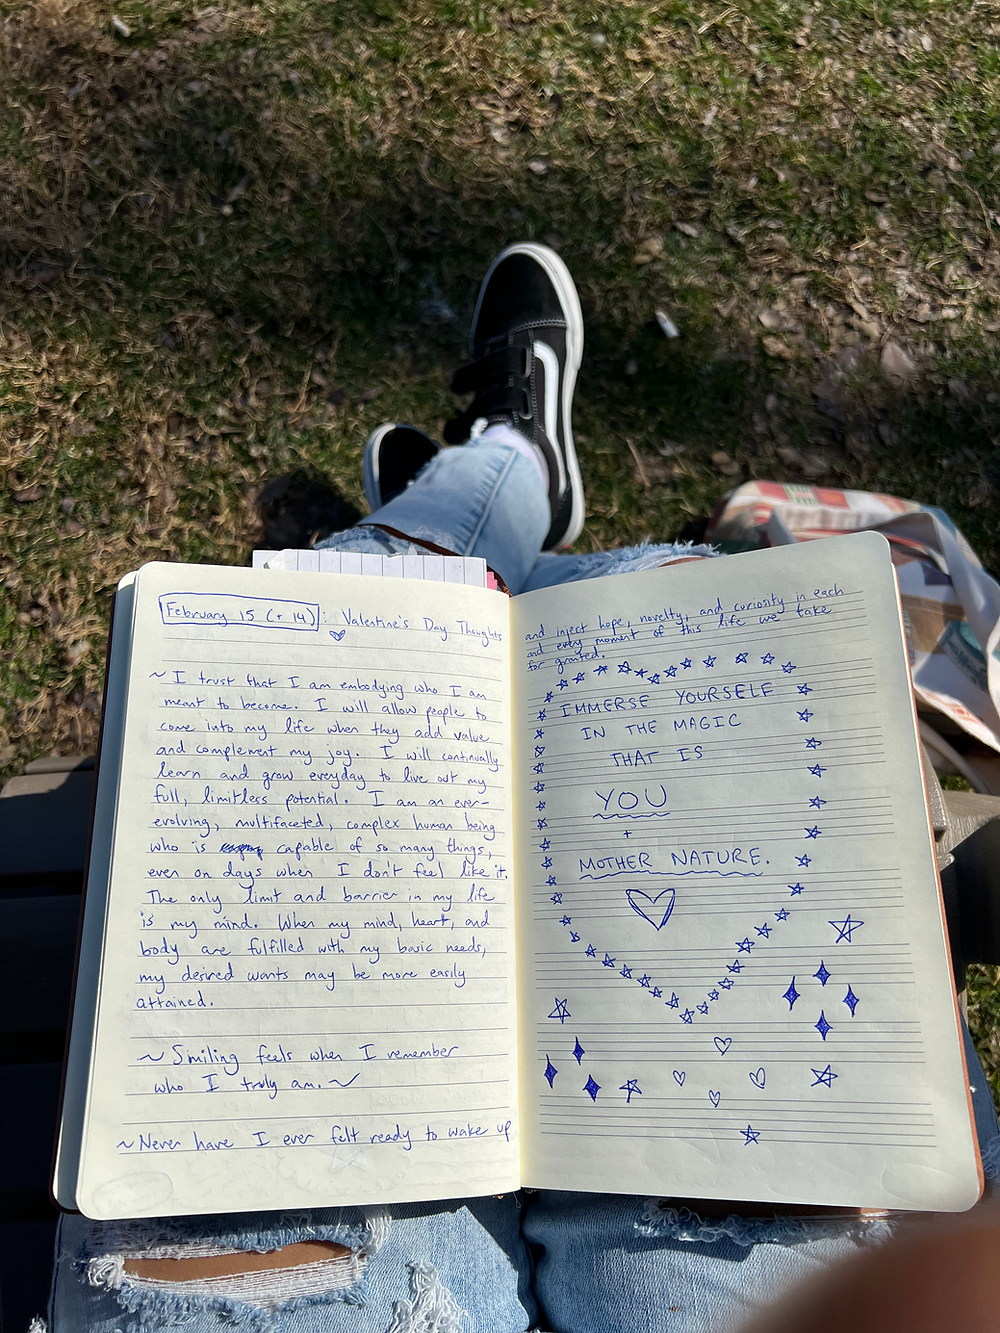 February 15 (+ 14) : Valentine's Day Thoughts
~ I trust that I am embodying who I am
meant to become. I will allow people to
come into my life when they add value
and complement my joy. I will continually
learn and grow everyday to live out my
full, limitless potential. I am an ever-
evolving, multifaceted, complex human being
who is capable of so many things,
even on days when I don't feel like it.
The only limit and barrier in my life
is my mind. When my mind, heart, and
body are fulfilled with my basic needs,
my desired wants may be more easily
attained.
~ Smiling feels when I remember
who I truly am. ~
~ Never have I ever felt ready to wake up
and inject hope, novelty, and curiosity in each
and every moment of this life we take
for granted.
IMMERSE YOURSELF
IN THE MAGIC
THAT IS
YOU
+
MOTHER NATURE.